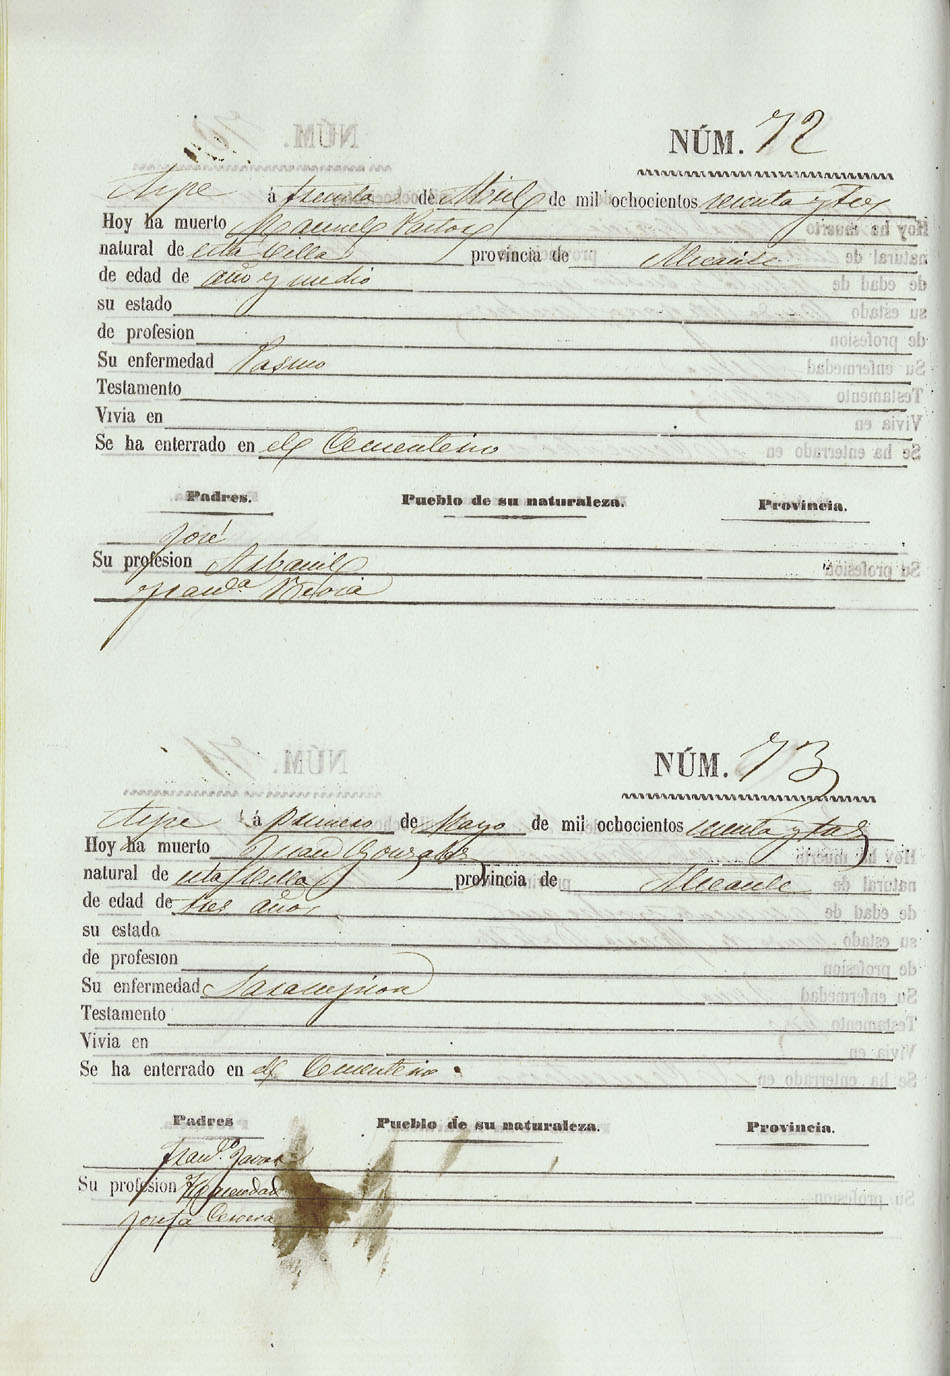 NÚM. 72
Aspe á treinta de Abril de mil ochocientos sesenta y tres
Hoy ha muerto Manuel Pastor
natural de esta Villa provincia de Alicante
de edad de año y medio
su estado
de profesion
Su enfermedad Pasmo
Testamento
Vivia en
Se ha enterrado en el Cementerio
Padres. Pueblo de su naturaleza. Provincia.
José
Su profesion Albañil
Franca
NÚM. 73
Aspe á primero de Mayo de mil ochocientos sesenta y tres
Hoy ha muerto Juan Gonzalez
natural de esta Villa provincia de Alicante
de edad de tres años
su estado
de profesion
Su enfermedad Sarampion
Testamento
Vivia en
Se ha enterrado en el Cementerio
Padres Pueblo de su naturaleza. Provincia.
Franco
Su profesion
Josefa Cervera